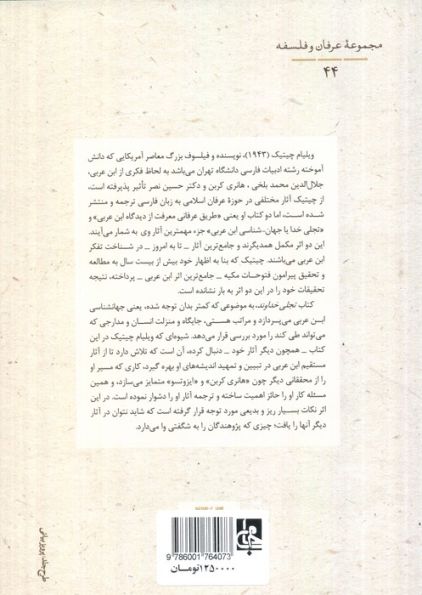 مجموعهٔ عرفان و فلسفه
۴۴
ویلیام چیتیک (۱۹۴۳)، نویسنده و فیلسوف بزرگ معاصر آمریکایی که دانش
آموخته رشته ادبیات فارسی دانشگاه تهران می‌باشد به لحاظ فکری از ابن عربی،
جلال‌الدین محمد بلخی، هانری کربن و دکتر حسین نصر تأثیر پذیرفته است،
از چیتیک آثار مختلفی در حوزهٔ عرفان اسلامی به زبان فارسی ترجمه و منتشر
شده است، اما دو کتاب او یعنی «طریق عرفانی معرفت از دیدگاه ابن عربی» و
«تجلی خدا یا جهان-شناسی ابن عربی» جزء مهمترین آثار وی به شمار می‌آیند.
این دو اثر مکمل همدیگرند و جامع‌ترین آثار _ تا به امروز _ در شناخت تفکر
ابن عربی می‌باشند. چیتیک که بنا به اظهار خود بیش از بیست سال به مطالعه
و تحقیق پیرامون فتوحات مکیه _ جامع‌ترین اثر ابن عربی _ پرداخته، نتیجه
تحقیقات خود را در این دو اثر به بار نشانده است.
کتاب تجلی خداوند، به موضوعی که کمتر بدان توجه شده، یعنی جهانشناسی
ابن عربی می‌پردازد و مراتب هستی، جایگاه و منزلت انسان و مدارجی که
می‌تواند طی کند را مورد بررسی قرار می‌دهد. شیوه‌ای که ویلیام چیتیک در این
کتاب _ همچون دیگر آثار خود _ دنبال کرده، آن است که تلاش دارد تا از آثار
مستقیم ابن عربی در تبیین و تمهید اندیشه‌های او بهره گیرد، کاری که مسیر او
را از محققانی دیگر چون «هانری کربن» و «ایزوتسو» متمایز می‌سازد، و همین
مسئله کار او را حائز اهمیت ساخته و ترجمه آثار او را دشوار نموده است. در این
اثر نکات بسیار ریز و بدیعی مورد توجه قرار گرفته است که شاید نتوان در آثار
دیگر آنها را یافت؛ چیزی که پژوهندگان را به شگفتی وا می‌دارد.
جامی
9 786001 764073
۱۲۵۰۰۰۰تومان
طرح جلد: پرویز بیانی